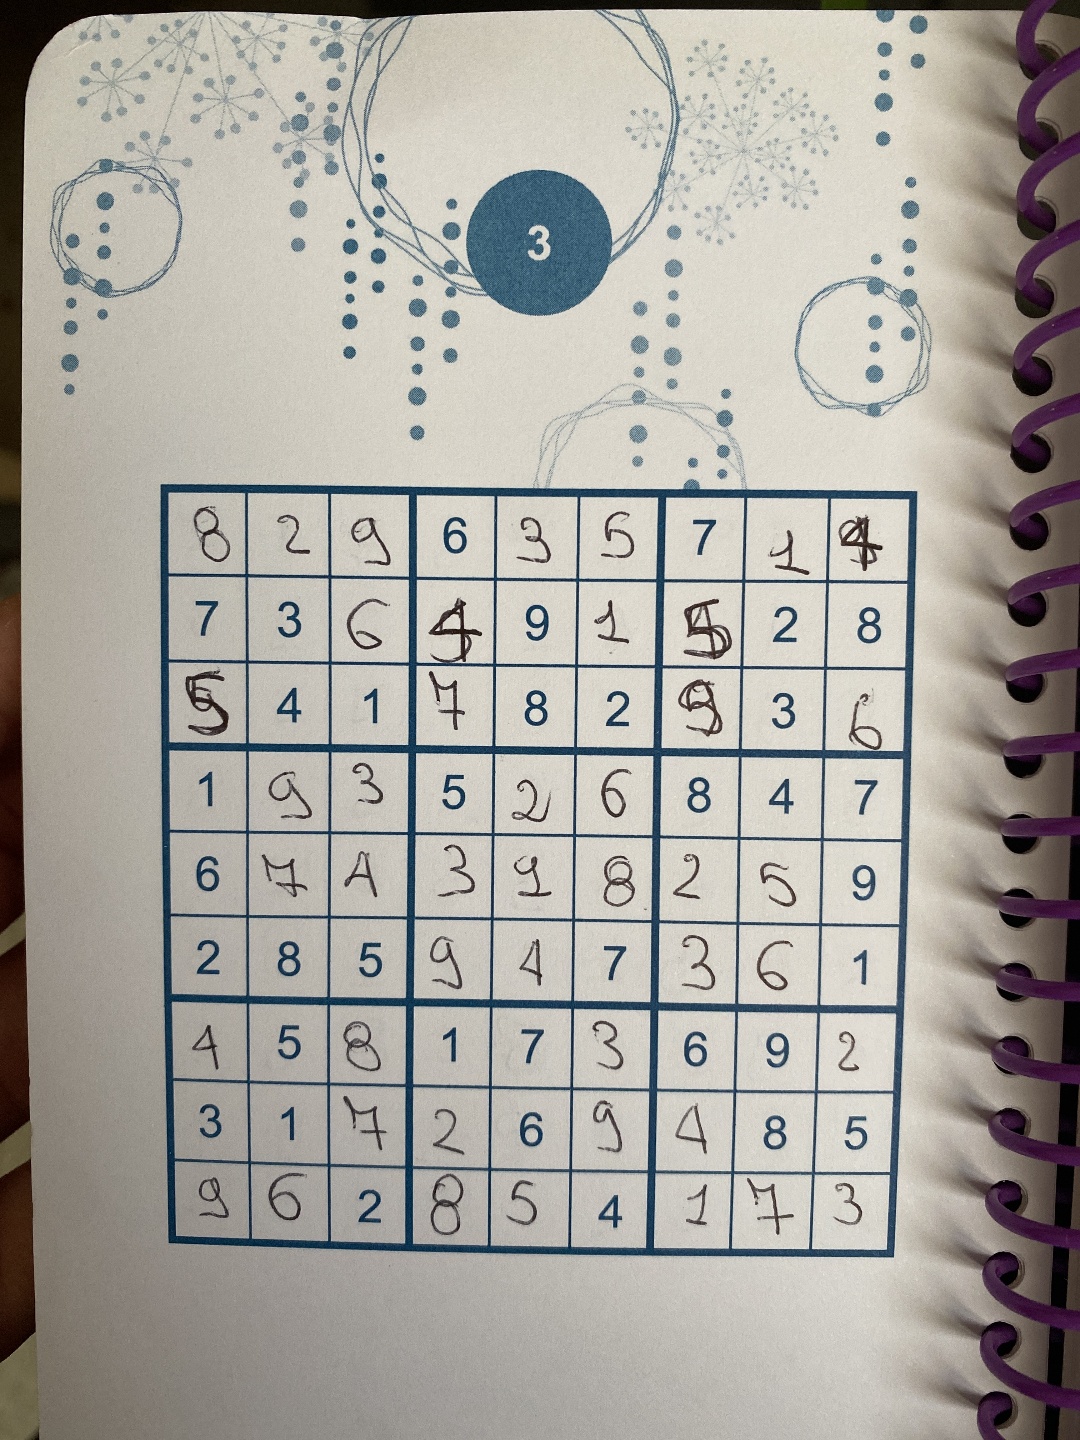 3
8 2 9 6 3 5 7 1 4
7 3 6 4 9 1 5 2 8
5 4 1 7 8 2 9 3 6
1 9 3 5 2 6 8 4 7
6 7 4 3 1 8 2 5 9
2 8 5 9 4 7 3 6 1
4 5 8 1 7 3 6 9 2
3 1 7 2 6 9 4 8 5
9 6 2 8 5 4 1 7 3